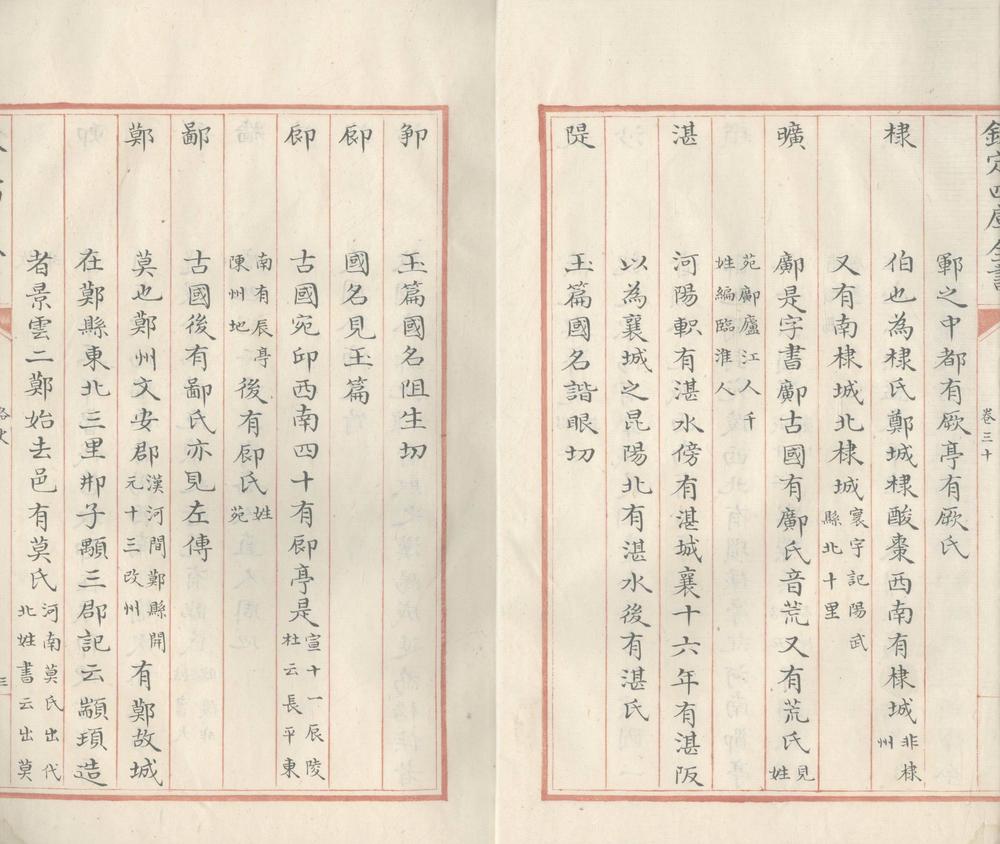 欽定四庫全書 卷三十
鄆之中都有厥亭有厥氏
棣 伯也為棣氏鄭城棣酸棗西南有棣城非棣州
又有南棣城北棣城寰宇記陽武縣北十里
曠 鄺是字書鄺古國有鄺氏音荒又有荒氏見姓
苑鄺廬江人千姓編臨淮人
湛 河陽軹有湛水傍有湛城襄十六年有湛阪
以為襄城之昆陽北有湛水後有湛氏
隄 玉篇國名諧眼切
玉篇國名阻生切
國名見玉篇
古國宛邱西南四十有亭是宣十一辰陵杜云長平東
南有辰亭陳州地後有氏姓苑
鄙 古國後有鄙氏亦見左傳
鄚 莫也鄚州文安郡漢河間鄚縣開元十三改州有鄚故城
在鄚縣東北三里邢子顒三郡記云顓頊造
者景雲二鄚始去邑有莫氏河南莫氏出代北姓書云出莫